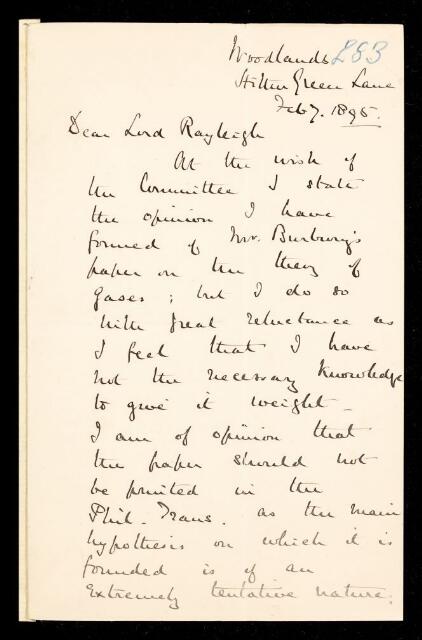 Woodlands 283
Hitten Green Lane
Feb 7. 1895.
Dear Lord Rayleigh
At the wish of
the Committee I state
the opinion I have
formed of Mr. Burbury's
paper on the theory of
gases; but I do so
with great reluctance as
I feel that I have
not the necessary knowledge
to give it weight –
I am of opinion that
the paper should not
be printed in the
Phil. Trans. as the main
hypothesis on which it is
founded is of an
extremely tentative nature: